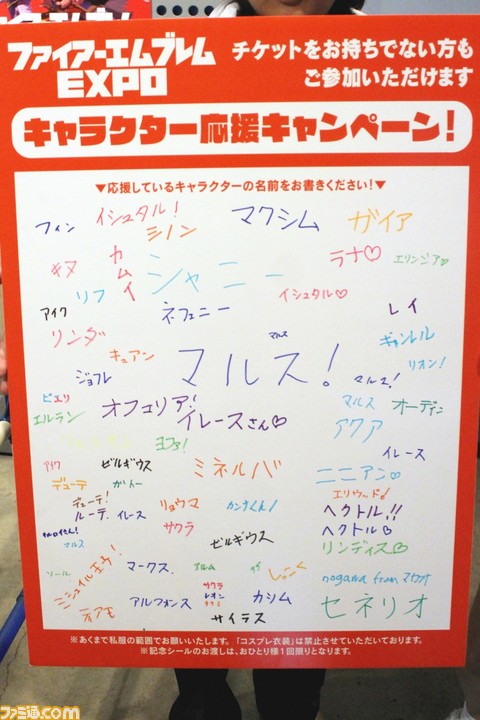 ファイアーエムブレム
EXPO
チケットをお持ちでない方も
ご参加いただけます
キャラクター応援キャンペーン!
▼応援しているキャラクターの名前をお書きください!▼
フィン
イシュタル!
シノン
マクシム
ガイア
キヌ
カムイ
シャニー
ラナ♡
エリンシア♡
リフ
イシュタル♡
アイク
ネフェニー
レイ
リンダ
キュアン
マルス
ギャンレル
ジョフレ
マルス!
マルス!
リオン!
ピエリ
エルラン
オフェリア!
イレースさん♡
マルス
オーディン
アクア
ヨファ!
イレース
アイク
ゼルギウス
ミネルバ
ニニアン♡
デューテ
ガトー
デューテ!
リョウマ
カンナくん!
エリウッド!
ルーテ、イレース
サクラ
ヘクトル!!
ヘクトル♡
マルス
ゼルギウス
リンディス♡
ソール
ミシェイル
マークス
アルム
しっこく
nogawa from マカオ
ティアモ
アルフォンス
サクラ
レオン
カシム
サイラス
セネリオ
※あくまで私服の範囲でお願いいたします。「コスプレ衣装」は禁止させていただいております。
※記念シールのお渡しは、おひとり様1回限りとなります。
ファミ通.com